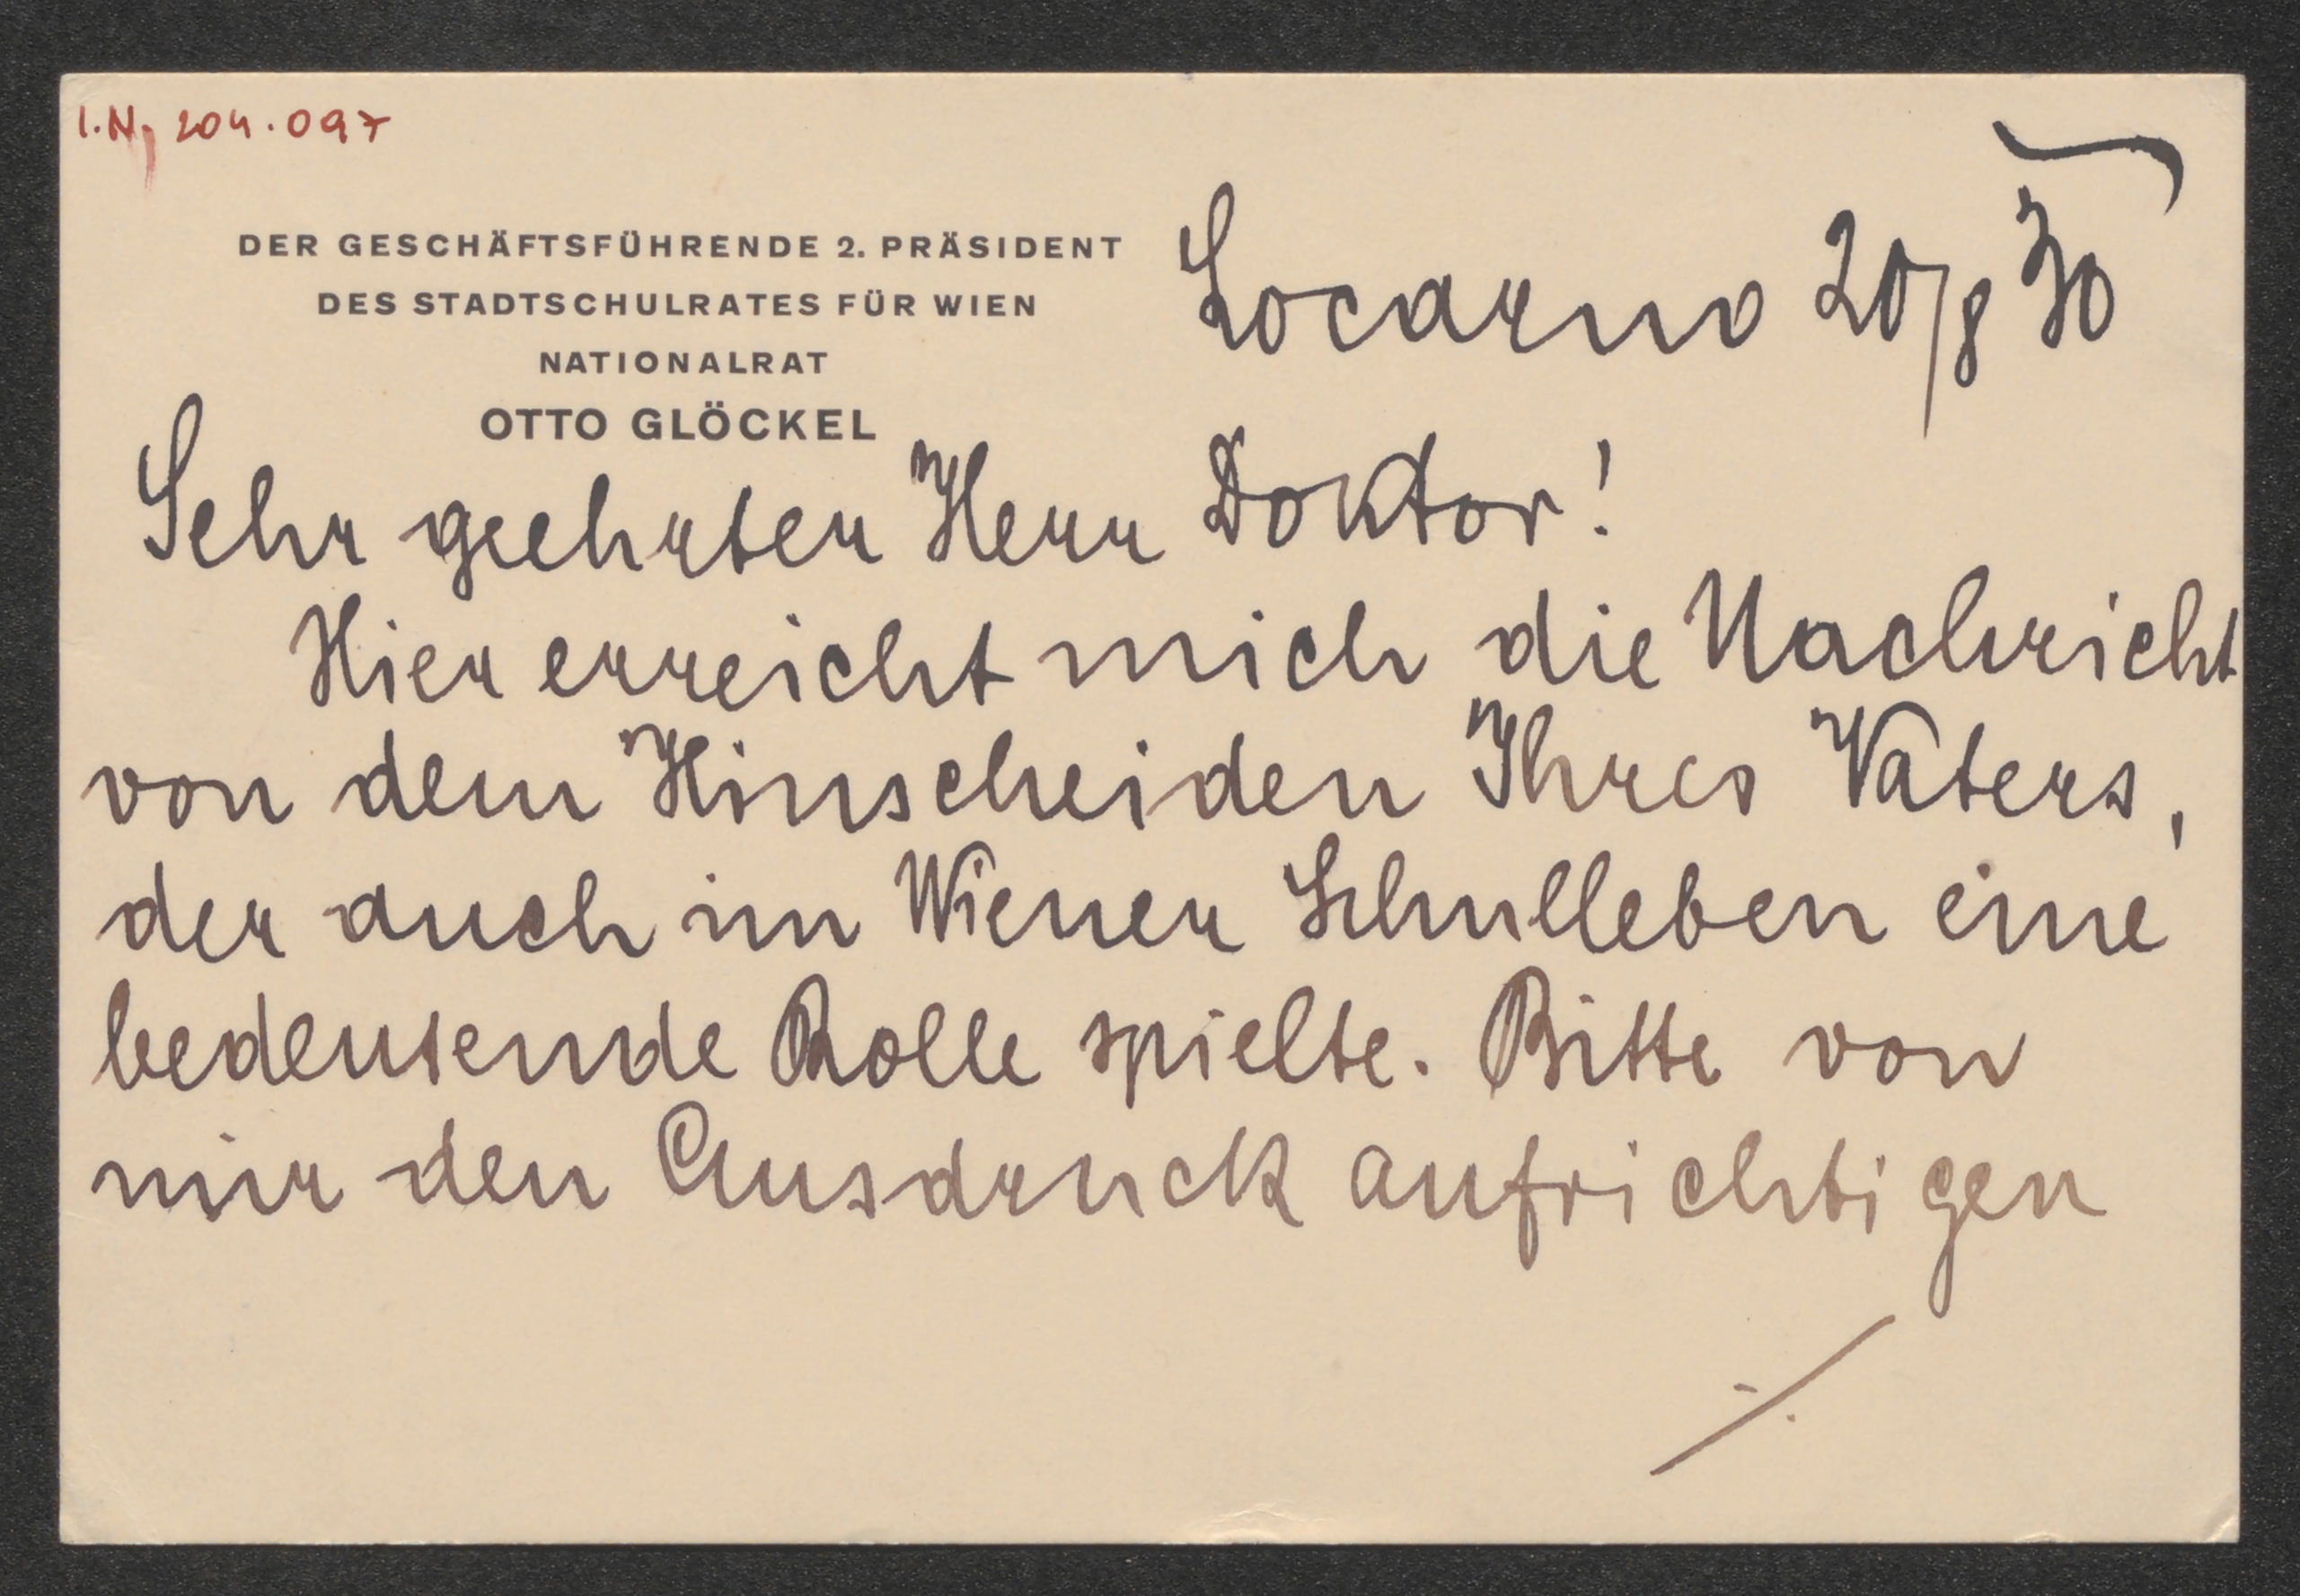 I.N. 204.097
DER GESCHÄFTSFÜHRENDE 2. PRÄSIDENT
DES STADTSCHULRATES FÜR WIEN
NATIONALRAT
OTTO GLÖCKEL
Locarno 20/8 30
Sehr geehrter Herr Doktor!
Hier erreicht mich die Nachricht
von dem Hinscheiden Ihres Vaters,
der auch im Wiener Schulleben eine
bedeutende Rolle spielte. Bitte von
mir den Ausdruck aufrichtigen
./.